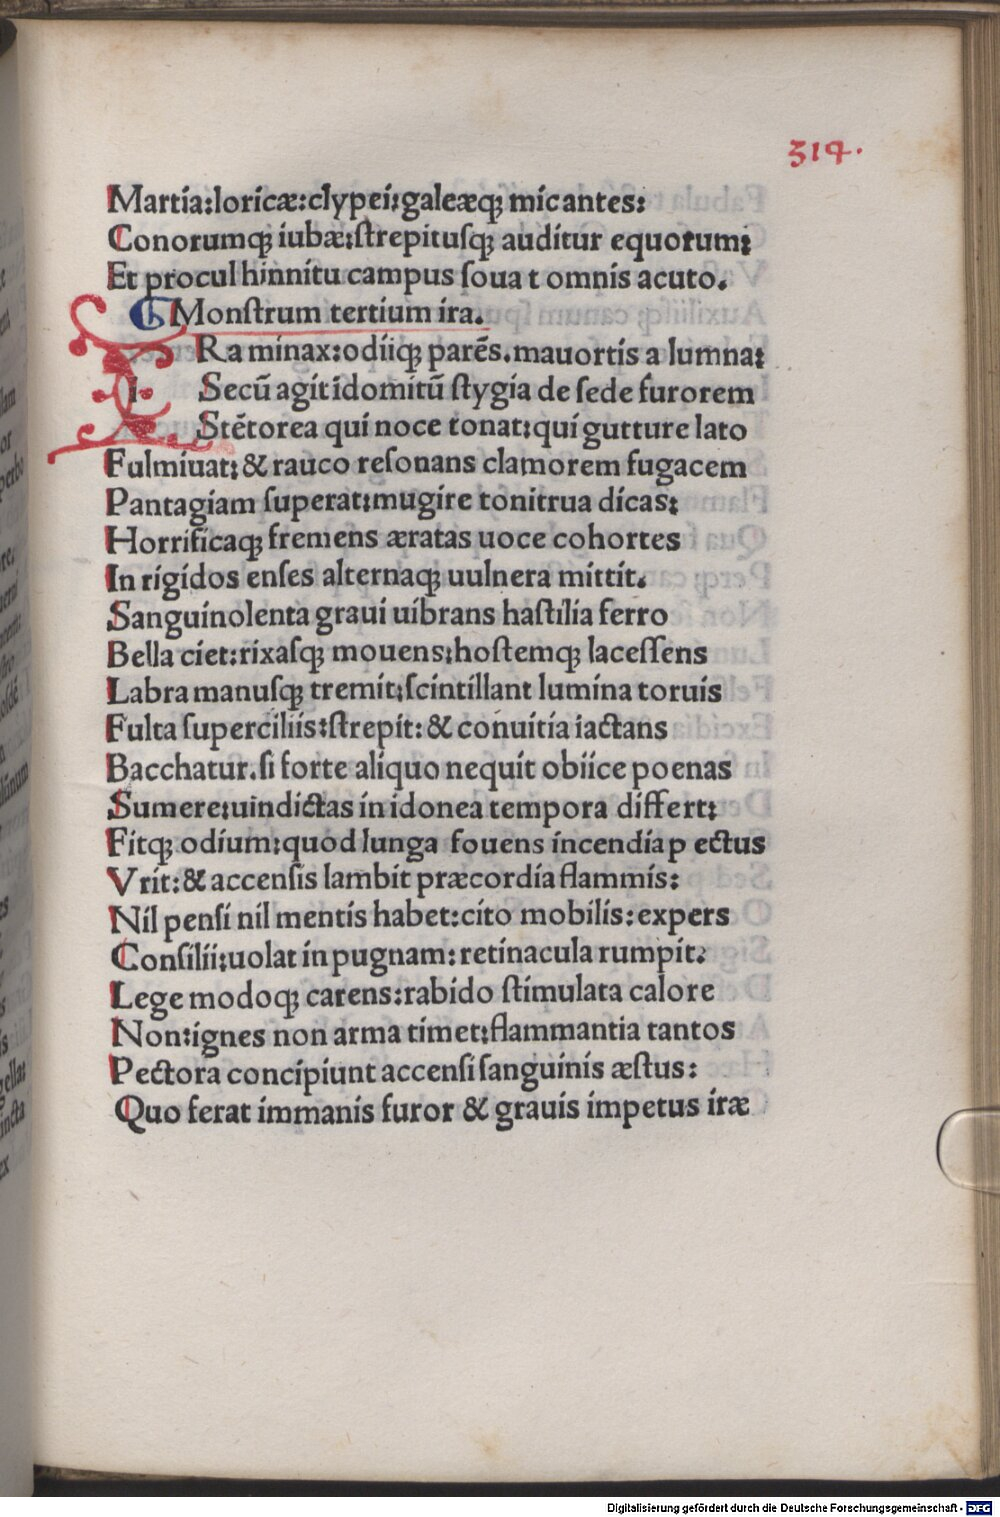 314.
Martia:loricæ:clypei;galeæq; micantes:
Conorumq; iubæ:ſtrepituſq; auditur equorum;
Et procul hinnitu campus ſoua t omnis acuto.
Monſtrum tertium ira.
Ra minax:odiiq; parēs.mauortis a lumna:
i Secū agit idomitū ſtygia de ſede furorem
Stētorea qui noce tonat:qui gutture lato
Fulmiuat: & rauco reſonans clamorem fugacem
Pantagiam ſuperat:mugire tonitrua dicas:
Horrificaq; fremens æratas uoce cohortes
In rigidos enſes alternaq; uulnera mittit.
Sanguinolenta graui uibrans haſtilia ferro
Bella ciet:rixaſq; mouens:hoſtemq; laceſſens
Labra manuſq; tremit:ſcintillant lumina toruis
Fulta ſuperciliis:ſtrepit: & conuitia iactans
Bacchatur.ſi forte aliquo nequit obiice poenas
Sumere:uindictas in idonea tempora differt:
Fitq; odium:quod lunga fouens incendia p ectus
Vrit: & accenſis lambit præcordia flammis:
Nil penſi nil mentis habet:cito mobilis:expers
Conſilii:uolat in pugnam:retinacula rumpit:
Lege modoq; carens:rabido ſtimulata calore
Non:ignes non arma timet:flammantia tantos
Pectora concipiunt accenſi ſanguinis æſtus:
Quo ferat immanis furor & grauis impetus iræ
Digitalisierung gefördert durch die Deutsche Forschungsgemeinschaft - DFG